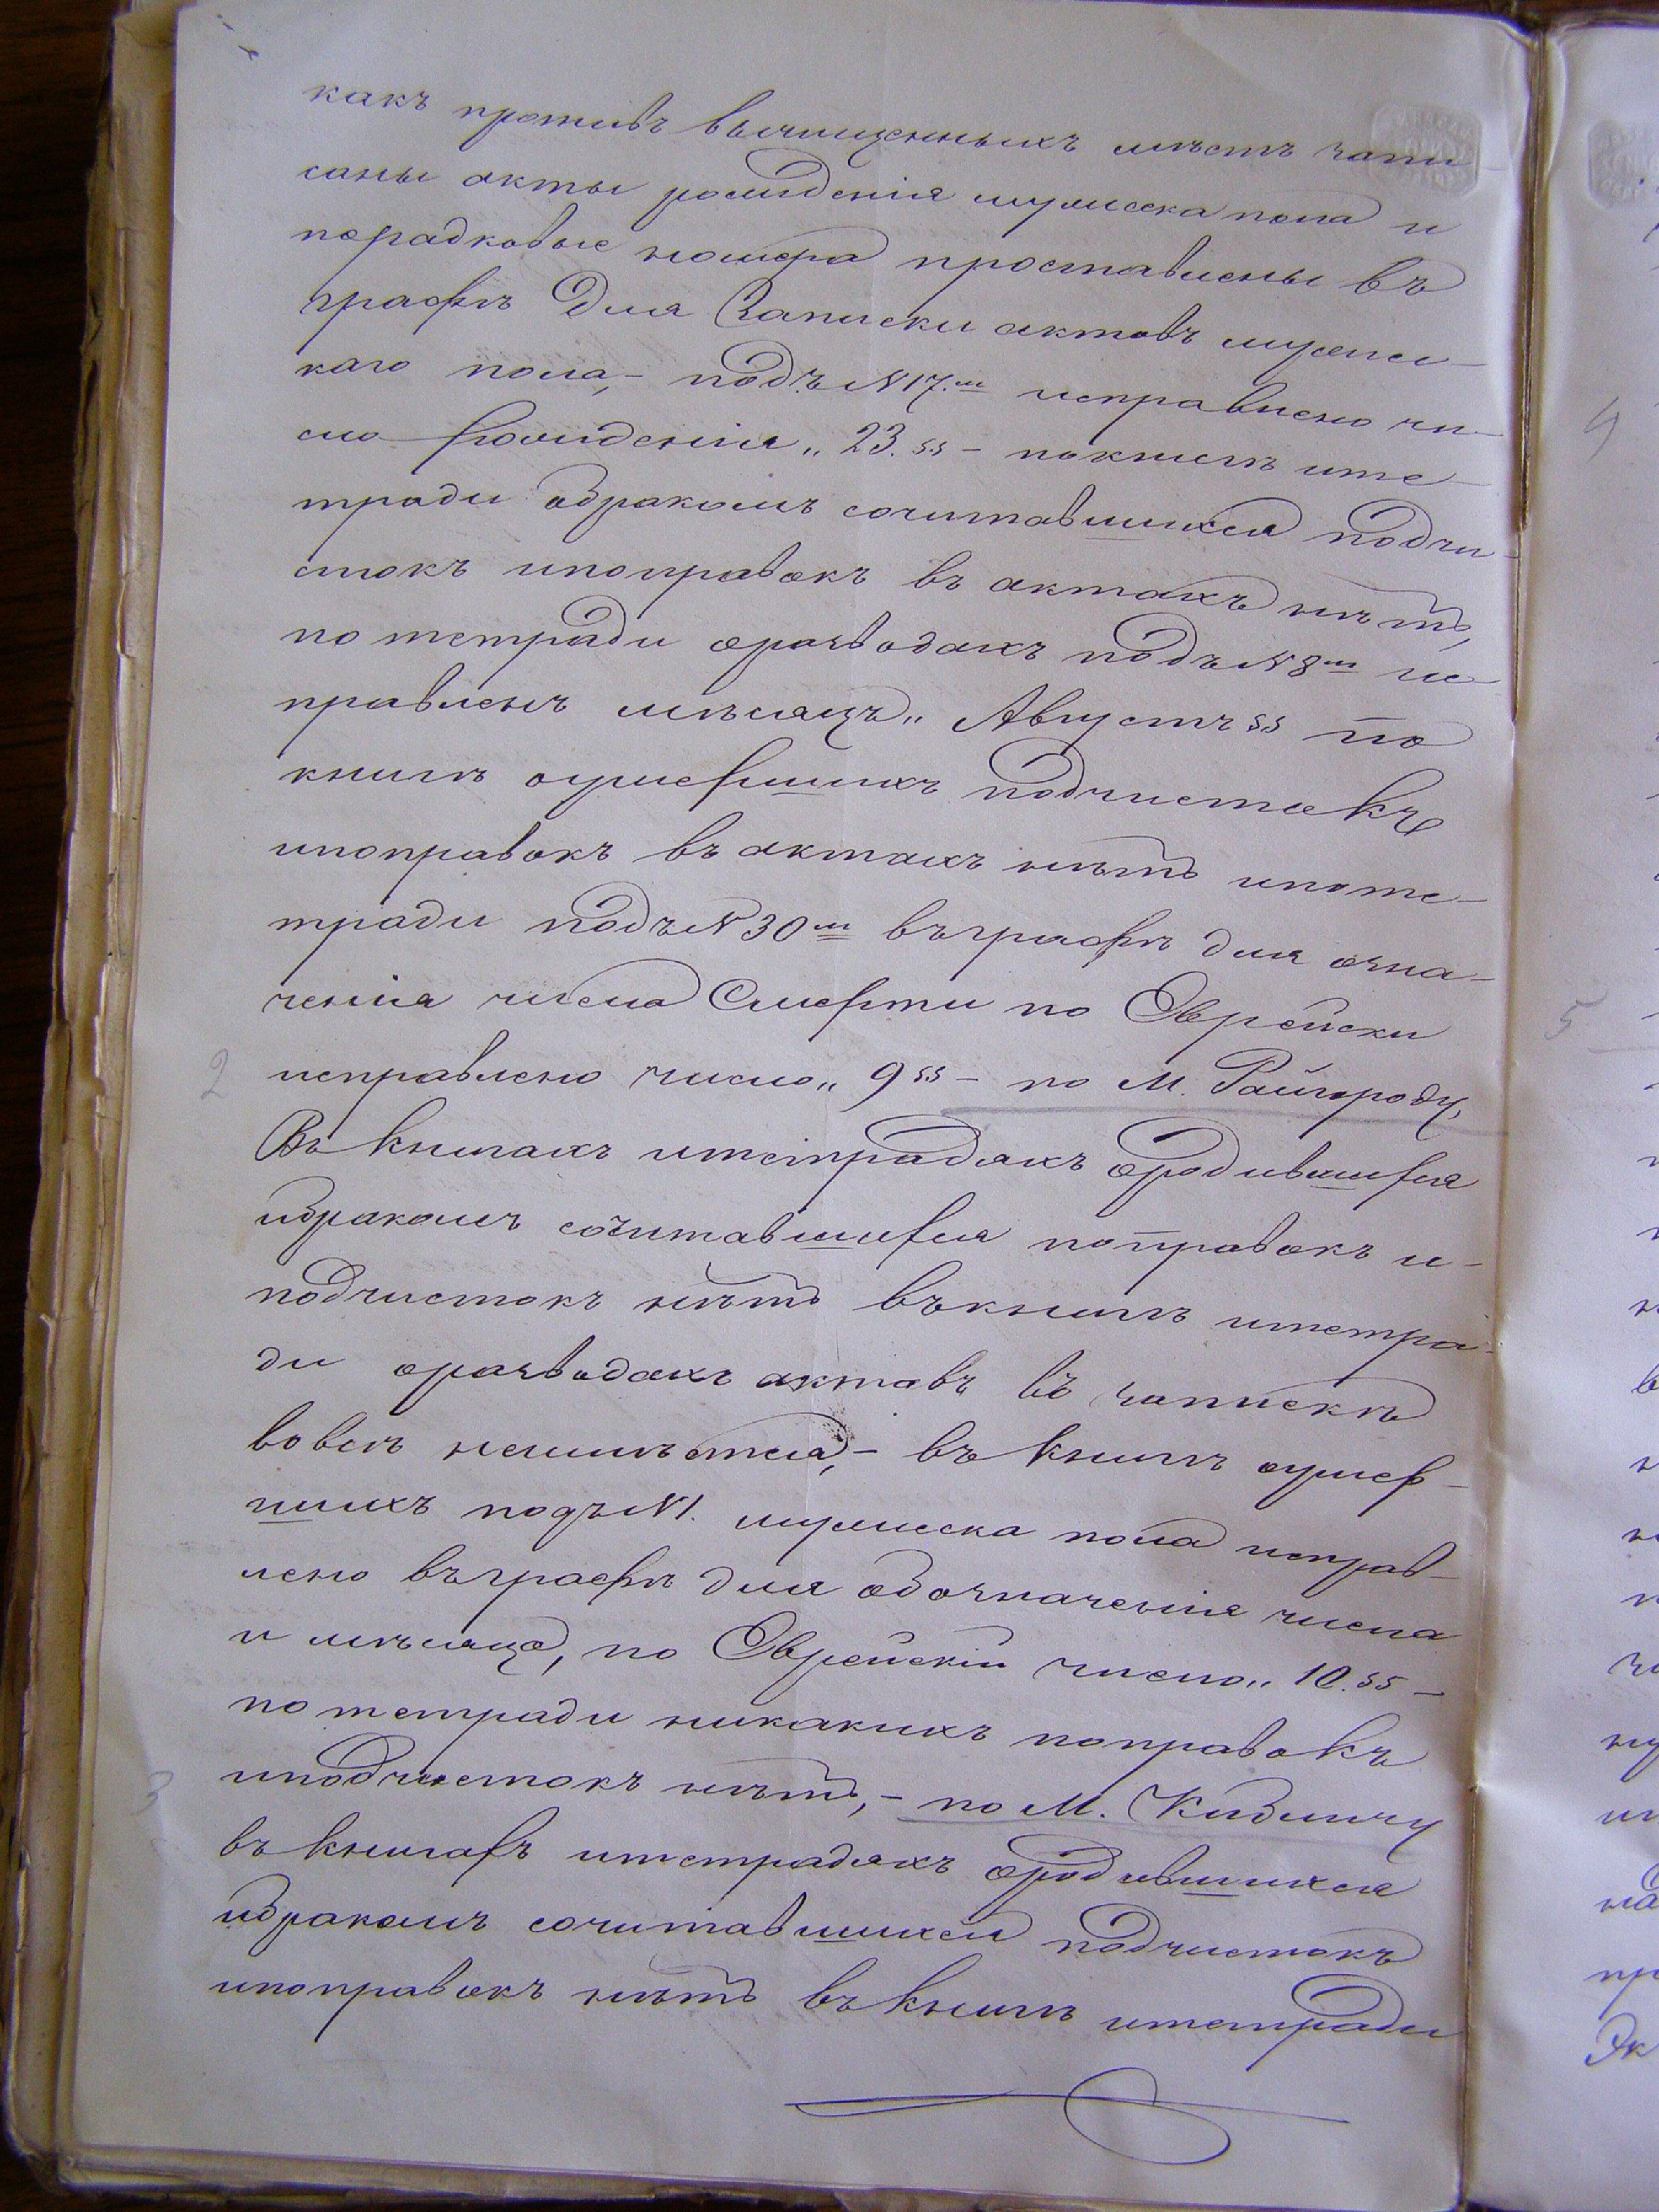 какъ противъ вычищенныхъ мѣстъ запи-
саны акты рожденія мужеска пола и
порадковые номера проставлены въ
графѣ для Записки актовъ мужес-
каго пола,- подъ N17.м исправлено чи-
сло Рожденія „23.ss - покнигѣ ите-
тради обракомъ сочитавшихся подчи-
стокъ ипоправокъ въ актахъ нѣтъ,
по тетради оразводахъ подъ N8м ис
правленъ мѣсяцъ „Августъ ss по
книгѣ оумершихъ подчистокъ
ипоправокъ въ актахъ нѣтъ ипоте-
тради подъ N30м въграфѣ для озна-
ченія числа Смерти по Еврейски
2 исправлено число „9 ss - по М. Райгроду,
Въ книгахъ итетрадяхъ ородившихся
ибракомъ сочитавшихся поправокъ и-
подчистокъ нѣтъ въкнигѣ итетра-
ди оразводахъ актовъ въ запискѣ
вовсѣ неимѣется,- въ книгѣ оумер-
шихъ подъ N1. мужеска пола исправ-
лено въграфѣ для обозначенія числа
и мѣсяца, по Еврейскій число „10.ss -
по тетради никакихъ поправокъ
3 иподчистокъ нѣтъ,- по М.
въ книгахъ итетрадяхъ ородившихся
ибракомъ сочитавшихся подчистокъ
ипоправокъ нѣтъ въ книгѣ итетради
4
5